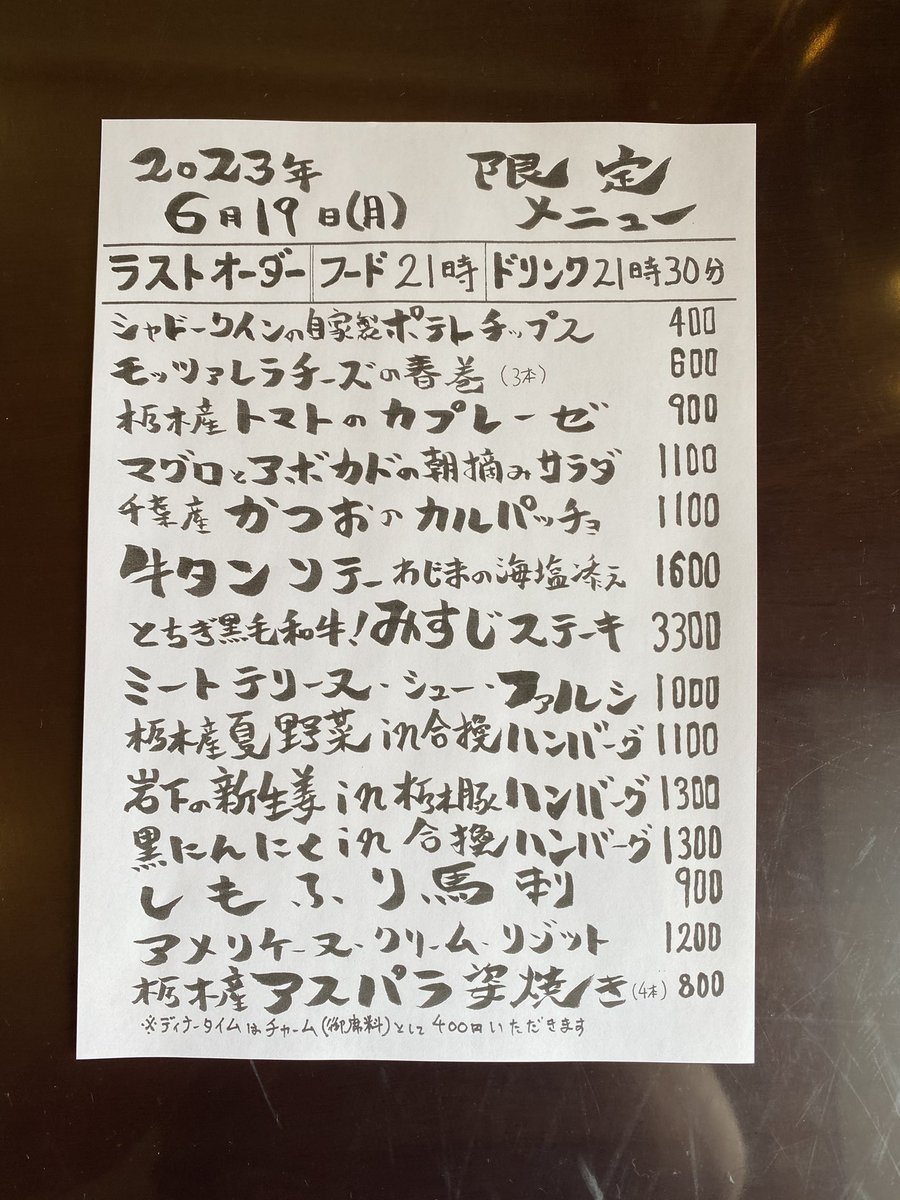 2023年
6月19日(月)
限定
メニュー
ラストオーダー フード21時 ドリンク21時30分
シャドークインの自家製ポテトチップス 400
モッツァレラチーズの春巻(3本) 600
栃木産トマトのカプレーゼ 900
マグロとアボカドの朝摘みサラダ 1100
千葉産かつおのカルパッチョ 1100
牛タンソテーわじまの海塩添え 1600
とちぎ黒毛和牛!みすじステーキ 3300
ミートテリーヌ・シュー・ファルシ 1000
栃木産夏野菜in合挽ハンバーグ 1100
岩下の新生姜in栃木豚ハンバーグ 1300
黒にんにくin合挽ハンバーグ 1300
しもふり馬刺 900
アメリケーヌ・クリーム・リゾット 1200
栃木産アスパラ姿焼き(4本) 800
※ディナータイムはチャーム(御席料)として400円いただきます